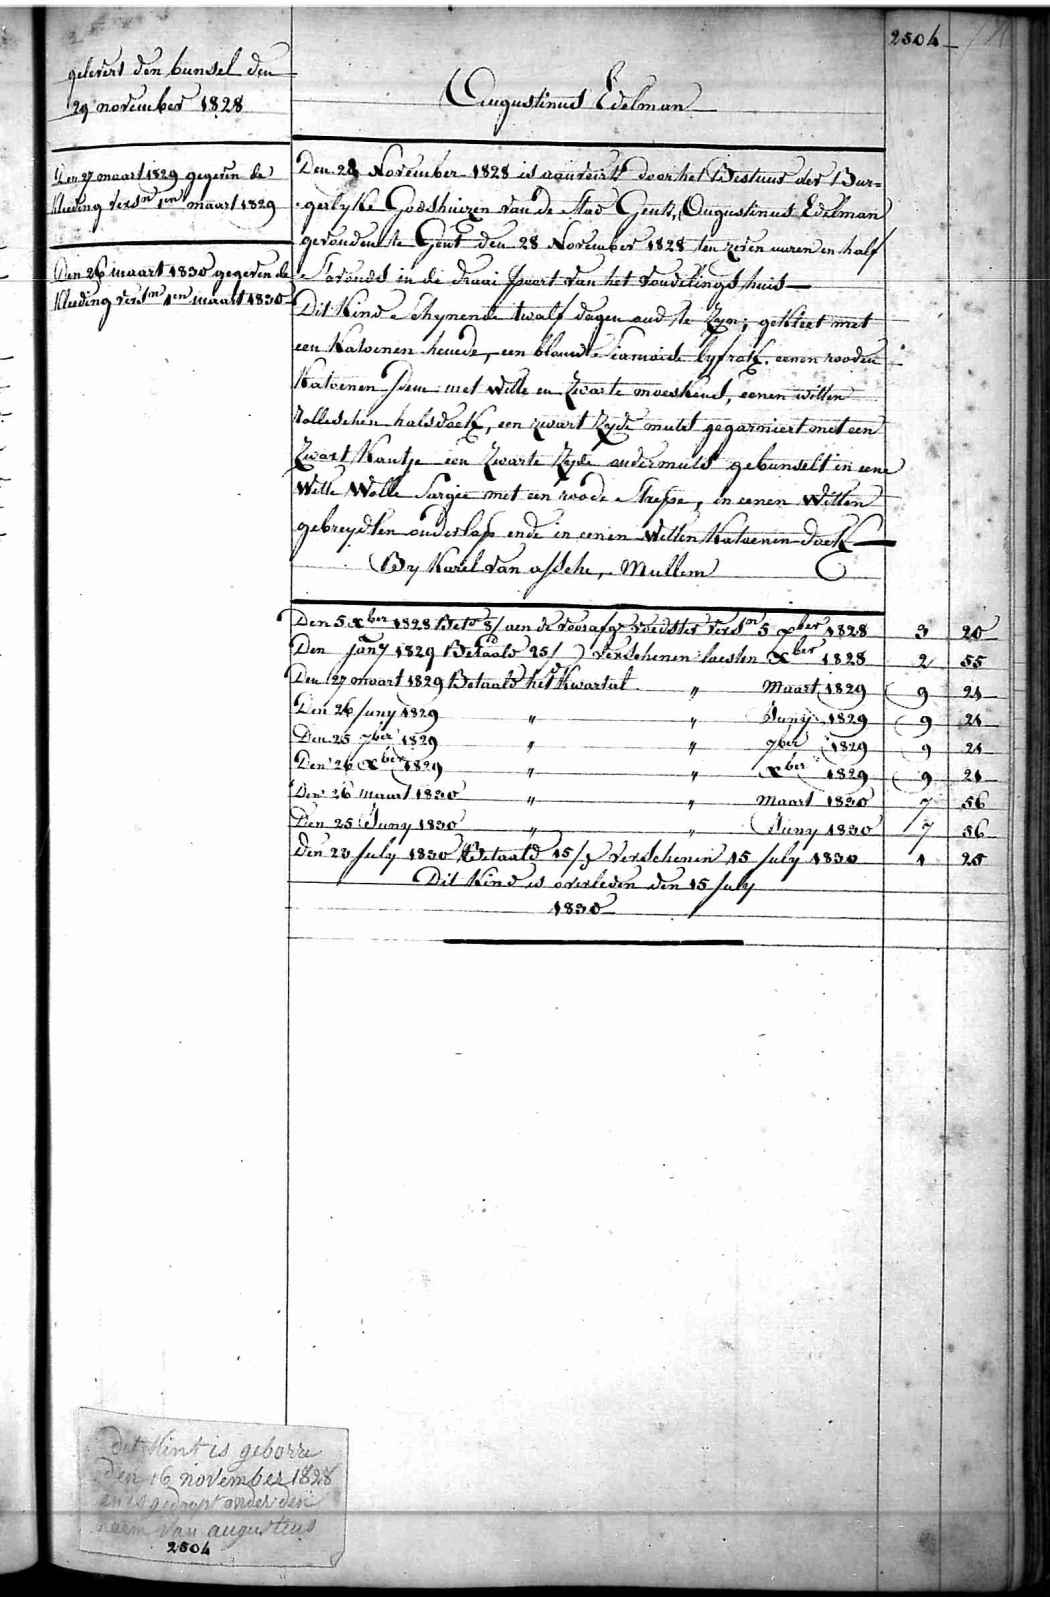 2504
gelevert den bunsel den
29 november 1828
Augustinus Edelman
Den 27 maart 1829 gegeven de
kleeding versn 1en maart 1829
Den 26 maart 1830 gegeven de
kleeding versn 1en maart 1830
Den 28 November 1828 is aenveirt door het Bestuur der Bur=
gerlyke Godshuizen van de Stad Gent, Augustinus Edelman
gevonden te Gent den 28 November 1828 ten zeven uuren en half
s'avonds in de draai poort van het vondelings huis
Dit Kind schynende twalf dagen oud te zyn; gekleet met
een Katoenen hemde, een blauwe siamoise lyfrok, eenen rooden
Katoenen Idem met witte en zwarte moeskens, eenen witten
nollischen halsdoek, een zwart zyde muts gegarniert met een
zwart kantje een zwarte zyde ondermuts gebunselt in eene
Witte Wolle Sargie met een roode streepe, in eenen Witten
gebreyden onderlap ende in eenen Witten Katoenen doek
By Karel van assche, Mullem
Den 5 Xber 1828 Betd 8/ aen de voorafge voedster versn 5 Xber 1828 3 20
Den Jany 1829 Betaald 25/ verschenen laesten Xber 1828 2 55
Den 27 maart 1829 Betaald het Kwartal " Maart 1829 9 21
Den 26 Juny 1829 " " Juny 1829 9 21
Den 25 7ber 1829 " " 7ber 1829 9 21
Den 26 Xber 1829 " " Xber 1829 9 21
Den 26 maart 1830 " " maart 1830 7 56
Den 25 Juny 1830 " " Juny 1830 7 56
Den 23 July 1830 Betaald 15/ verschenen 15 July 1830 1 25
Dit Kind is overleden den 15 July
1830
Det Kint is geborre
Den 16 november 1828
en is gedoopt onder den
naem van augustius
2504